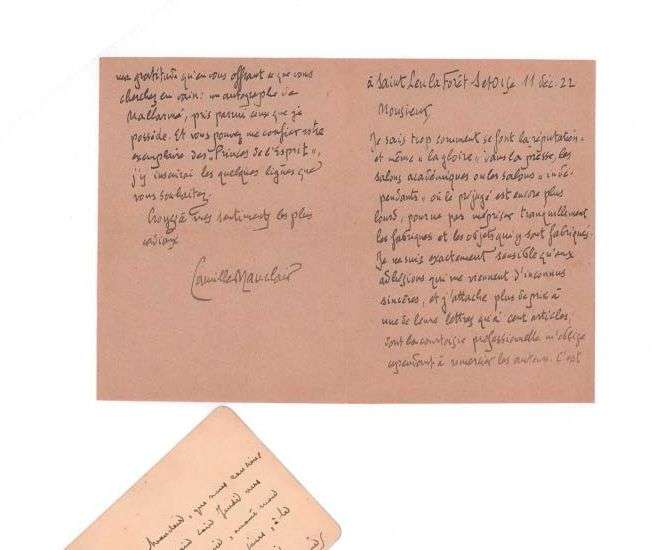 à Saint Leu la Forêt S et Oise 11 déc. 22
Monsieur,
Je sais trop comment se font la réputation
et même « la gloire », dans la presse, les
salons académiques ou les salons « indé-
pendants » où le préjugé est encore plus
lourd, pour ne pas mépriser tranquillement
les fabriques et les objets qui y sont fabriqués.
Je ne suis exactement sensible qu'aux
adhésions qui me viennent d'inconnus
sincères, et j'attache plus de prix à
une de leurs lettres qu'à cent articles,
dont la courtoisie professionnelle m'oblige
cependant à remercier les auteurs. C'est
gratitude qu'en vous offrant ce que vous
cherchez en vain : un autographe de
Mallarmé, pris parmi ceux que je
possède. Et vous pouvez me confier votre
exemplaire des « Princes de l'Esprit »,
j'y inscrirai les quelques lignes que
vous souhaitez.
Croyez à mes sentiments les plus
cordiaux
Camille Mauclair
que nous